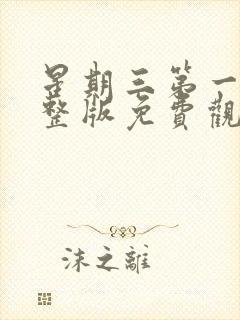 星期三第一
整版免費觀
沫之離